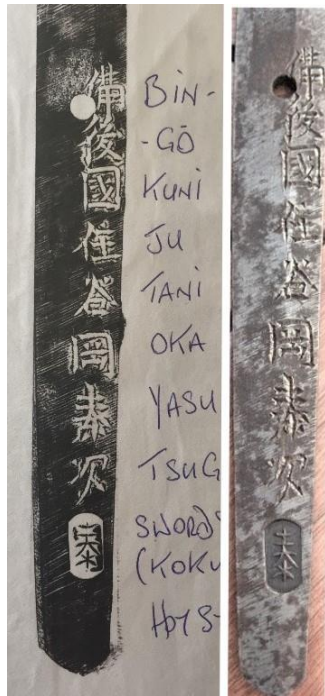 備後國住谷岡泰次
BIN-
-GŌ
KUNI
JU
TANI
OKA
YASU
TSUG
SWORDS
(KOKU
備後國住谷岡泰次